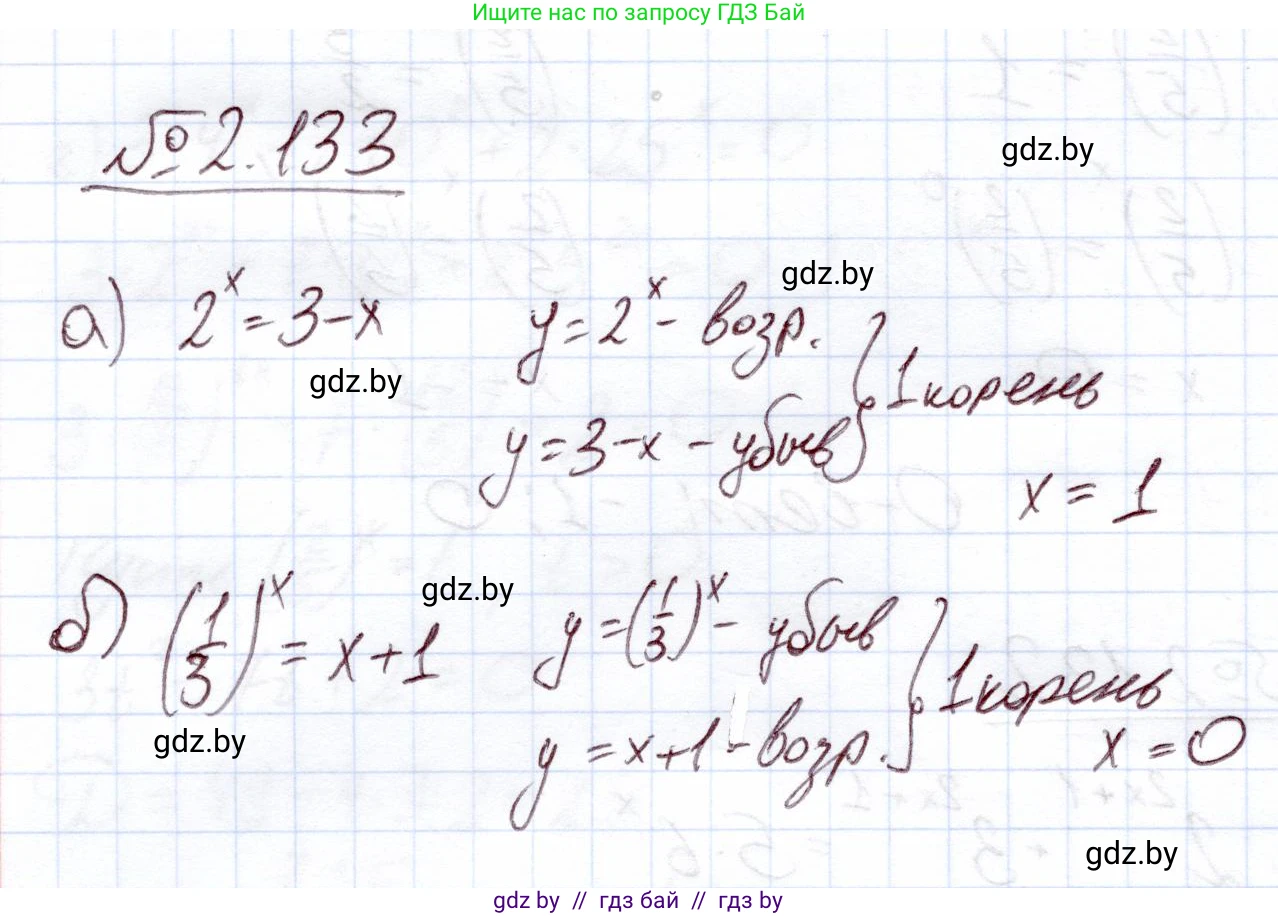 Ищите нас по запросу ГДЗ Бай
№ 2.133
gdz.by
а) 2^x = 3 - x
y = 2^x - возр.
gdz.by
gdz.by
y = 3 - x - убыв
} 1 корень
x = 1
б) (1/3)^x = x + 1
gdz.by
y = (1/3)^x - убыв
y = x + 1 - возр.
} 1 корень
x = 0
gdz.by
gdz.by
gdz by // гдз бай // гдз by